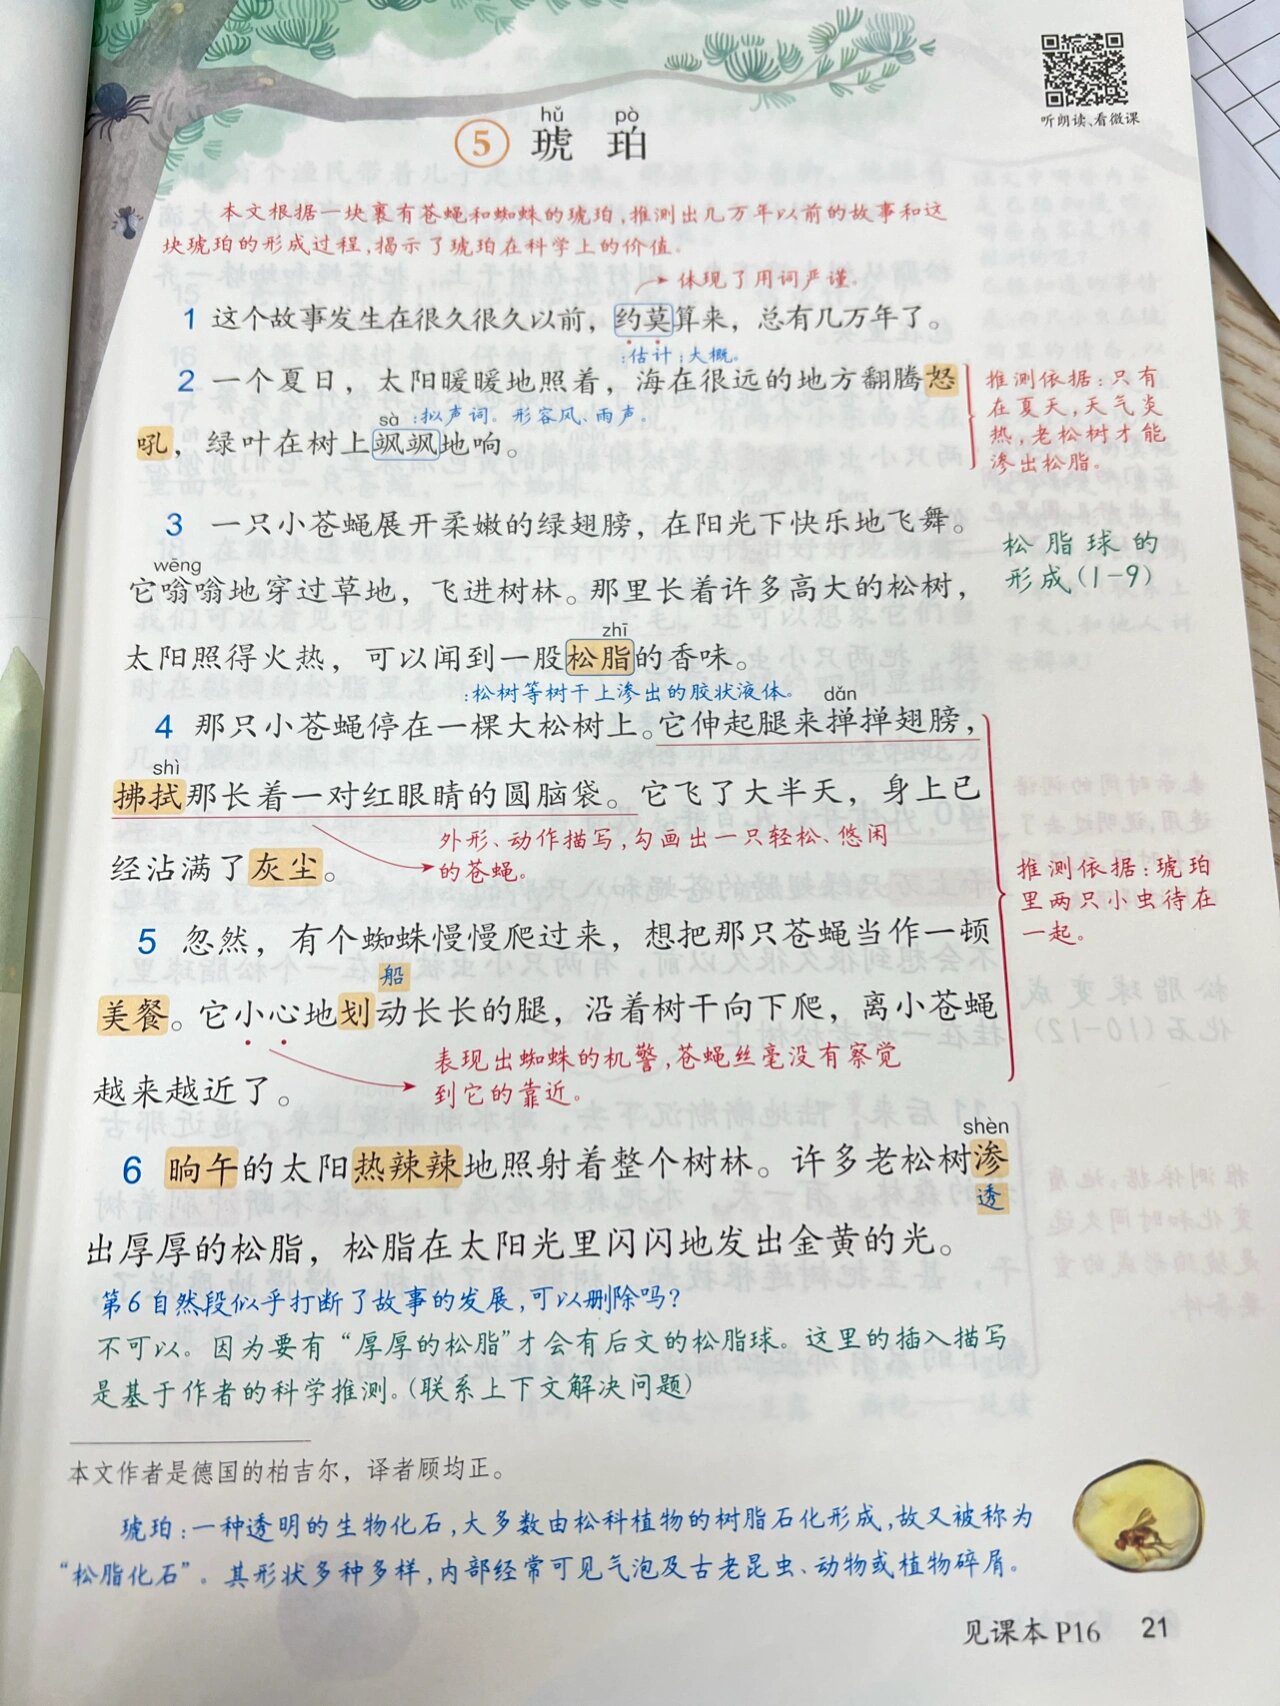 听朗读、看微课
hǔ pò
5 琥 珀
本文根据一块裹有苍蝇和蜘蛛的琥珀,推测出几万年以前的故事和这
块琥珀的形成过程,揭示了琥珀在科学上的价值。
体现了用词严谨。
1 这个故事发生在很久很久以前，约莫算来，总有几万年了。
:估计;大概。
2 一个夏日，太阳暖暖地照着，海在很远的地方翻腾怒
sà :拟声词。形容风、雨声。
吼，绿叶在树上飒飒地响。
推测依据:只有
在夏天,天气炎
热,老松树才能
渗出松脂。
3 一只小苍蝇展开柔嫩的绿翅膀，在阳光下快乐地飞舞。
wēng
它嗡嗡地穿过草地，飞进树林。那里长着许多高大的松树，
zhī
太阳照得火热，可以闻到一股松脂的香味。
:松树等树干上渗出的胶状液体。
松脂球的
形成(1-9)
dǎn
4 那只小苍蝇停在一棵大松树上。它伸起腿来掸掸翅膀，
shì
拂拭那长着一对红眼睛的圆脑袋。它飞了大半天，身上已
外形、动作描写,勾画出一只轻松、悠闲
的苍蝇。
经沾满了灰尘。
推测依据:琥珀
里两只小虫待在
一起。
5 忽然，有个蜘蛛慢慢爬过来，想把那只苍蝇当作一顿
船
美餐。它小心地划动长长的腿，沿着树干向下爬，离小苍蝇
表现出蜘蛛的机警,苍蝇丝毫没有察觉
到它的靠近。
越来越近了。
shèn
6 晌午的太阳热辣辣地照射着整个树林。许多老松树渗
透
出厚厚的松脂，松脂在太阳光里闪闪地发出金黄的光。
第6自然段似乎打断了故事的发展,可以删除吗?
不可以。因为要有“厚厚的松脂”才会有后文的松脂球。这里的插入描写
是基于作者的科学推测。(联系上下文解决问题)
本文作者是德国的柏吉尔，译者顾均正。
琥珀:一种透明的生物化石,大多数由松科植物的树脂石化形成,故又被称为
“松脂化石”。其形状多种多样,内部经常可见气泡及古老昆虫、动物或植物碎屑。
见课本P16 21